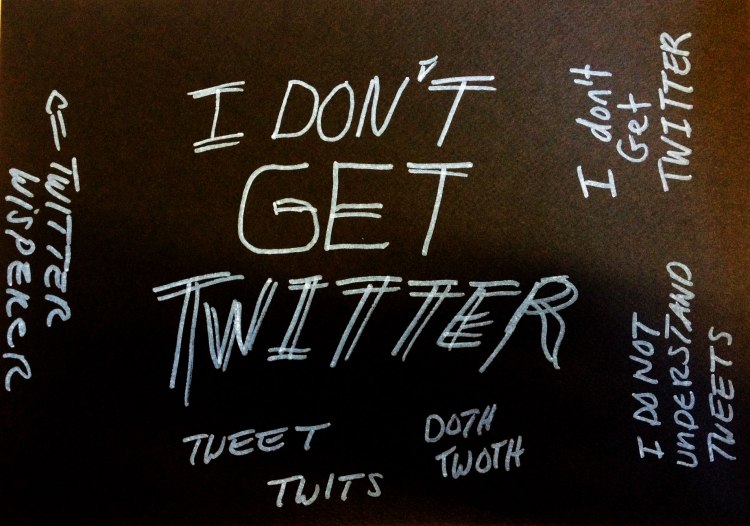 I DON'T
GET
TWITTER
TWEET
TWITS
DOTH
TWOTH
I don't
Get
TWITTER
I DO NOT
UNDERSTAND
TWEETS
⇐ TWITTER
WISPERER